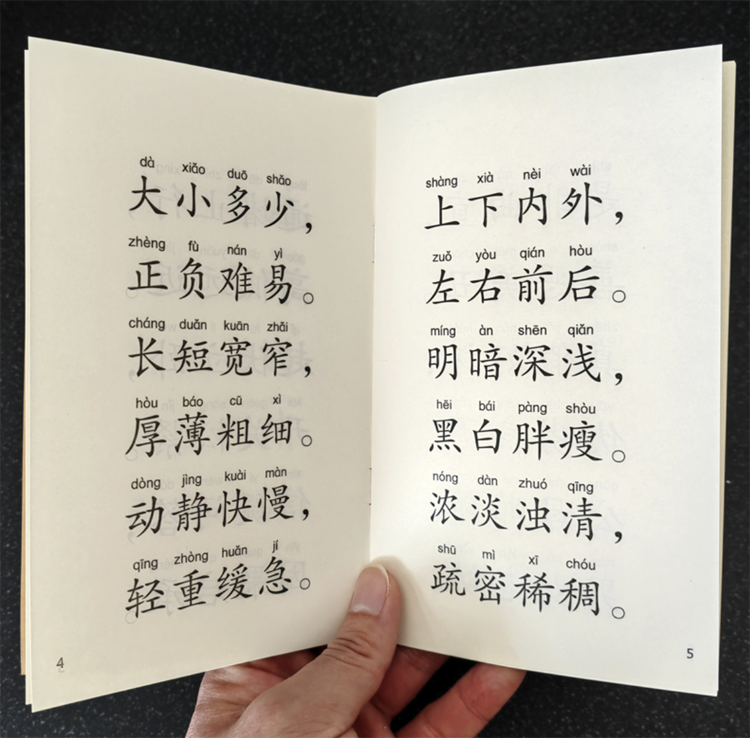 dà xiǎo duō shǎo
大小多少，
zhèng fù nán yì
正负难易。
cháng duǎn kuān zhǎi
长短宽窄，
hòu báo cū xì
厚薄粗细。
dòng jìng kuài màn
动静快慢，
qīng zhòng huǎn jí
轻重缓急。
4
shàng xià nèi wài
上下内外，
zuǒ yòu qián hòu
左右前后。
míng àn shēn qiǎn
明暗深浅，
hēi bái pàng shòu
黑白胖瘦。
nóng dàn zhuó qīng
浓淡浊清，
shū mì xī chóu
疏密稀稠。
5